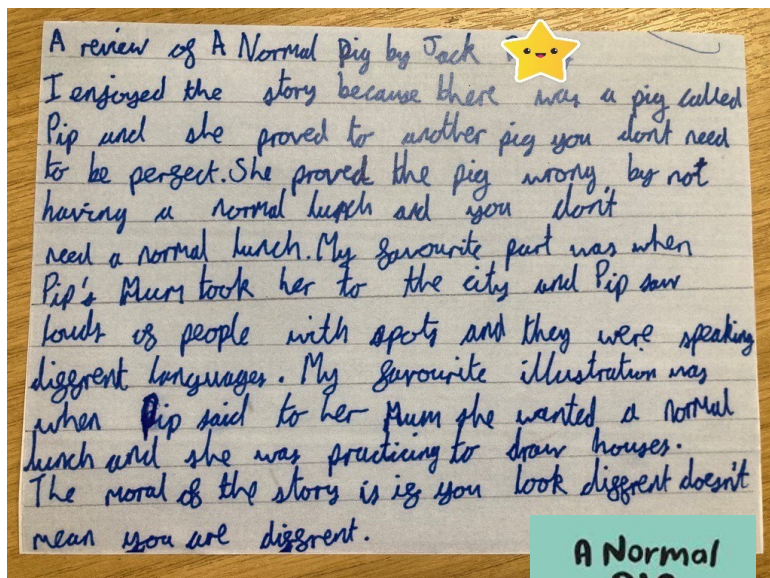 A review of A Normal Pig by Jack
I enjoyed the story because there was a pig called
Pip and she proved to another pig you dont need
to be perfect. She proved the pig wrong by not
having a normal lunch and you don't
need a normal lunch. My favourite part was when
Pip's Mum took her to the city and Pip saw
louds of people with spots and they were speaking
diffrent languages. My favourite illustration was
when Pip said to her Mum she wanted a normal
lunch and she was practicing to draw houses.
The moral of the story is if you look diffrent doesn't
mean you are diffrent.
A Normal